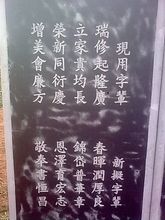 現用字輩
瑞修起隆廣
立家貴均長
榮新同衍慶
增美會廣方
新擬字輩
春暉潤厚良
錦岱普華章
恩澤育宏志
敬奉書恒昌